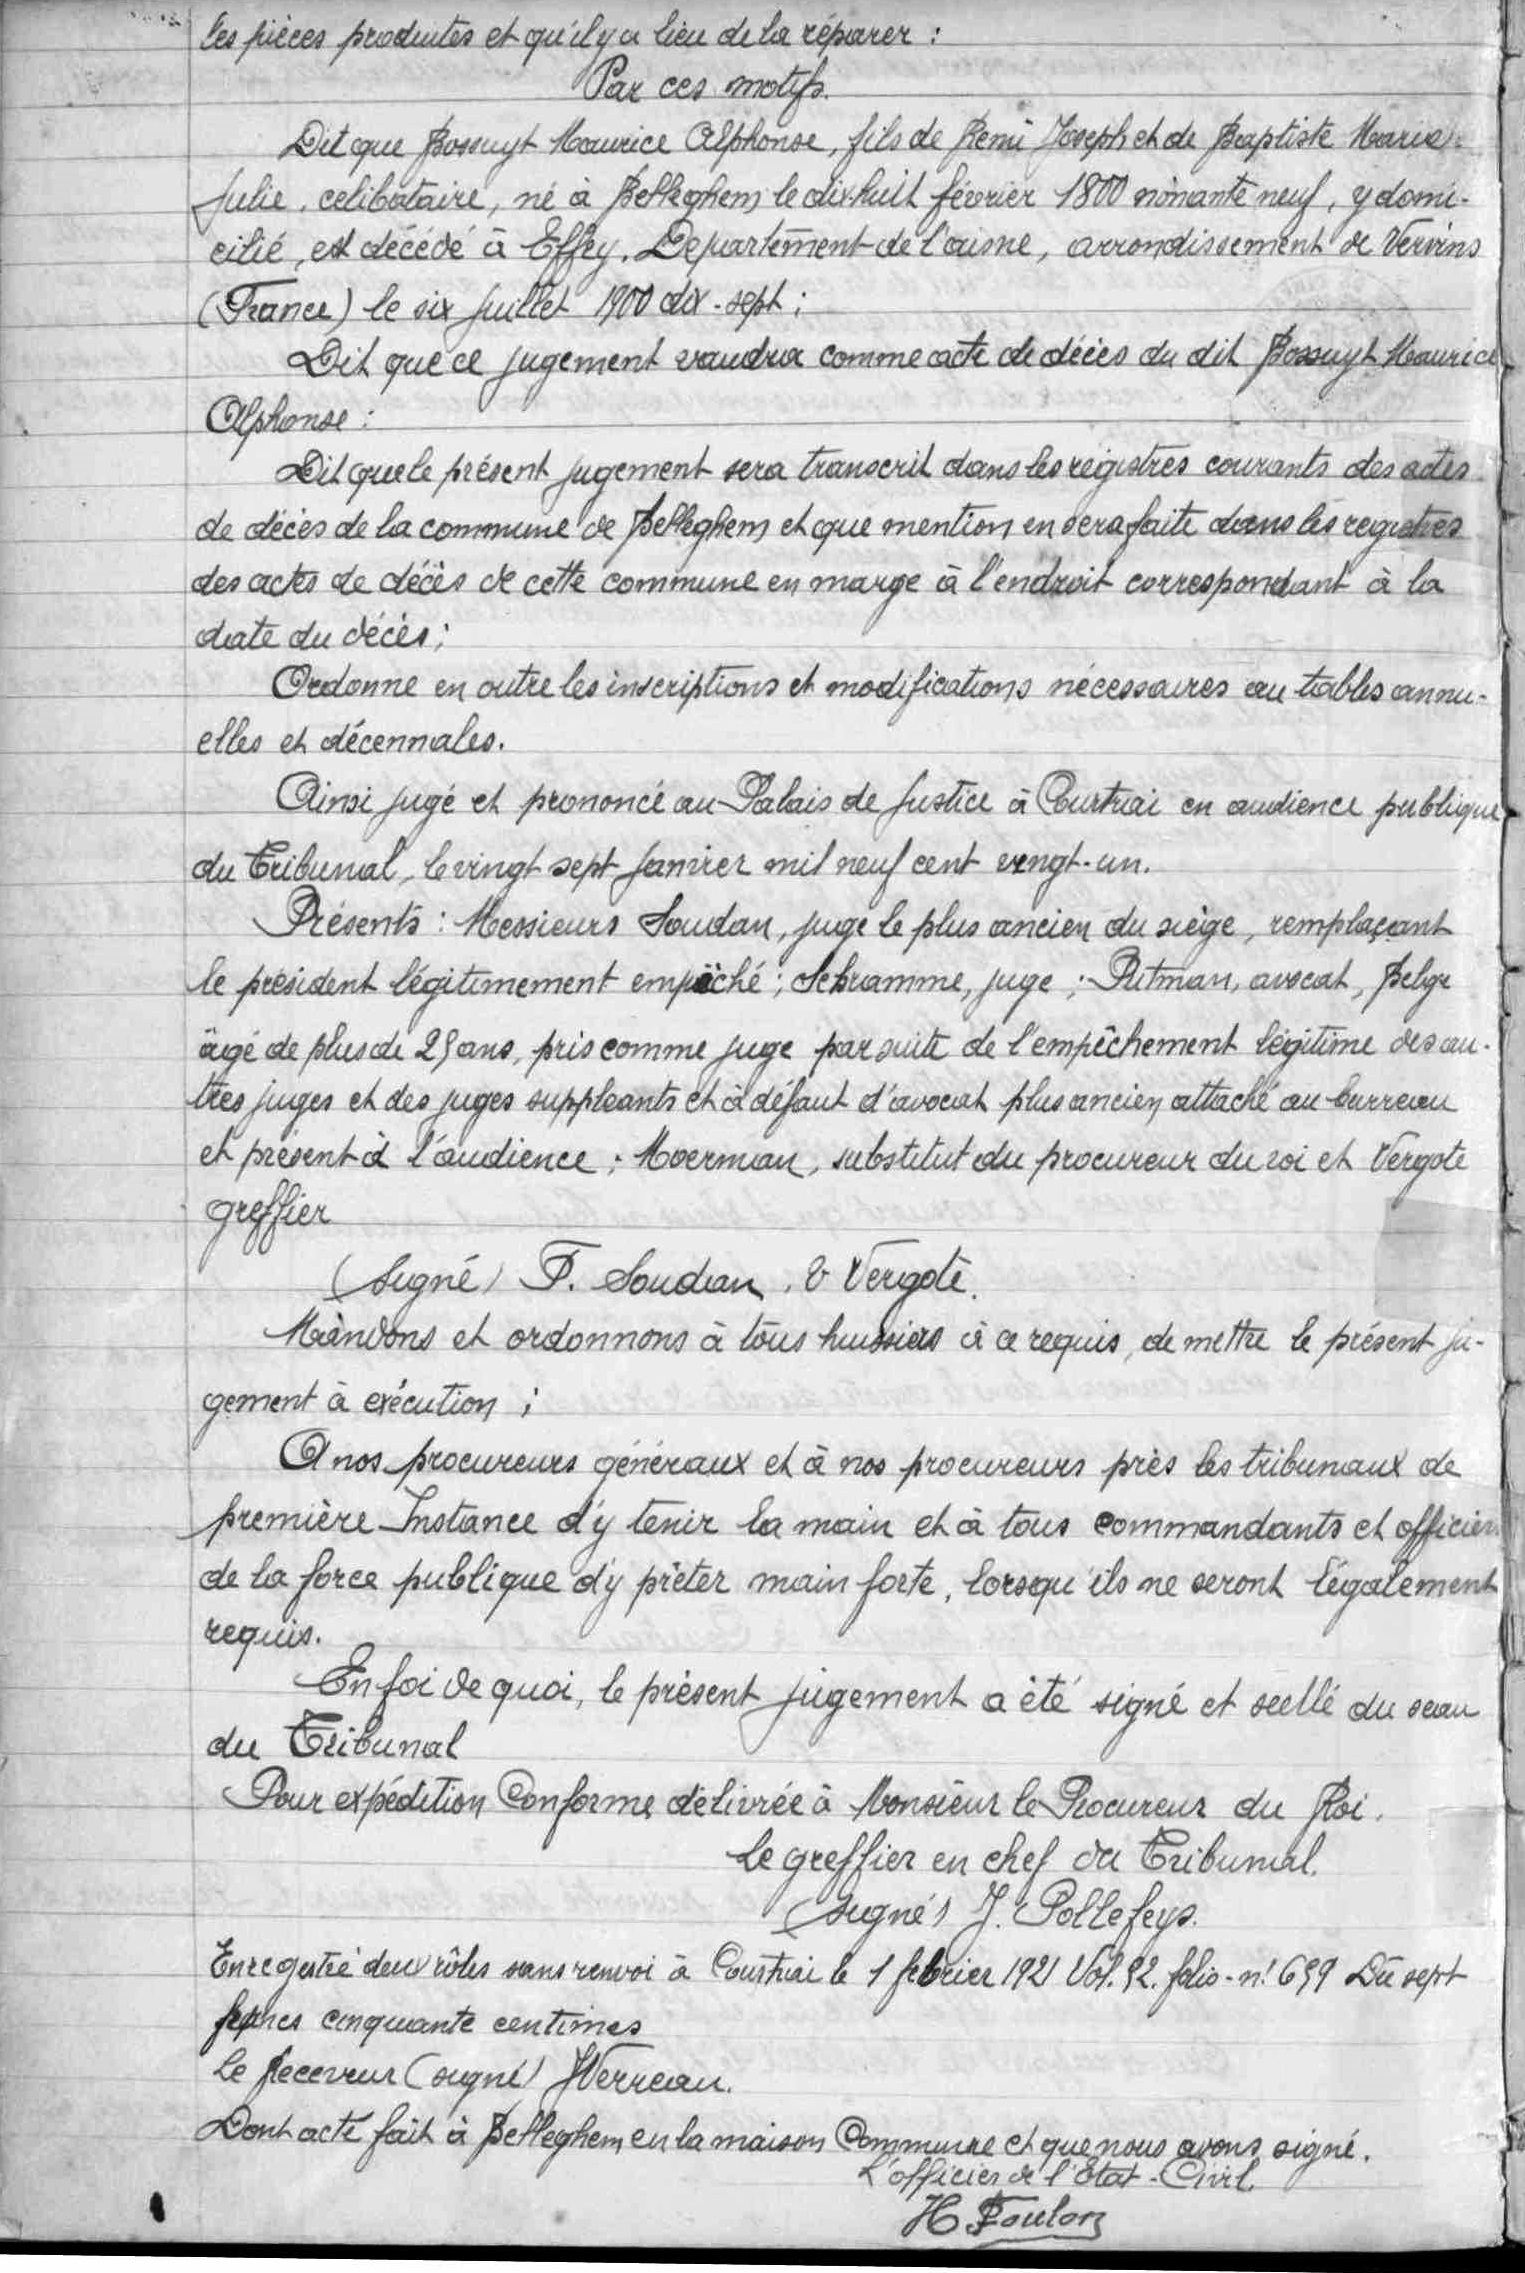 les pièces produites et qu'il y a lieu de la réparer :
Par ces motifs.
Dit que Bossuyt Maurice Alphonse, fils de Remi Joseph et de Baptiste Marie
Julie, celibataire, né à Belleghem le dix-huit février 1800 nonante neuf, y domi-
cilié, est décédé à Effry. Departement de l'aisne, arrondissement de Vervins
(France) le six juillet 1900 dix-sept ;
Dit que ce jugement vaudra comme acte de décès du dit Bossuyt Maurice
Alphonse :
Dit que le présent jugement sera transcrit dans les registres courants des actes
de décès de la commune de Belleghem et que mention en sera faite dans les registres
des actes de décès de cette commune en marge à l'endroit correspondant à la
date du décès ;
Ordonne en outre les inscriptions et modifications nécessaires au tables annu-
elles et décennales.
Ainsi jugé et prononcé au Palais de Justice à Courtrai en audience publique
du Tribunal, le vingt sept janvier mil neuf cent vingt-un.
Présents : Messieurs Soudan, juge le plus ancien du siège, remplaçant
le président légitimement empêché ; Schramme, juge ; Pitman, avocat, Belge
âgé de plus de 25 ans, pris comme juge par suite de l'empêchement légitime des au-
tres juges et des juges suppleants et à défaut d'avocat plus ancien attaché au barreau
et présent à l'audience ; Moerman, substitut du procureur du roi et Vergote
greffier
(signé) F. Soudan, V Vergote.
Mandons et ordonnons à tous huissiers à ce requis, de mettre le présent ju-
gement à exécution ;
A nos procureurs généraux et à nos procureurs près les tribunaux de
première Instance d'y tenir la main et à tous commandants et officiers
de la force publique d'y prêter main forte, lorsqu'ils ne seront légalement
requis.
En foi de quoi, le présent jugement a été signé et scellé du sceau
du Tribunal
Pour expédition Conforme délivrée à Monsieur le Procureur du Roi.
Le greffier en chef du Tribunal.
(signé) J. Pollefeys.
Enregistré deux rôles sans renvoi à Courtrai le 1 febrier 1921 Vol. 92. folio - n! 699 Dû sept
francs cinquante centimes
Le Receveur (signé) Werreau.
Dont acte fait à Belleghem en la maison Commune et que nous avons signé.
L'officier de l'Etat-Civil.
H Foulon